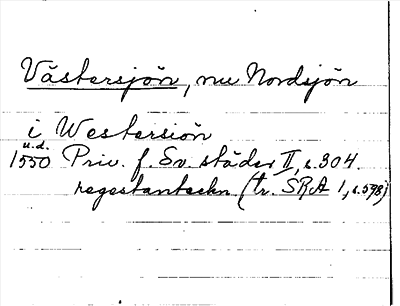 Västersjön, nu Nordsjön
i Westersiön
u.d.
1550 Priv. f. Sv. städer II, s. 304.
regestanteckn. (tr. SRA 1, s. 598)